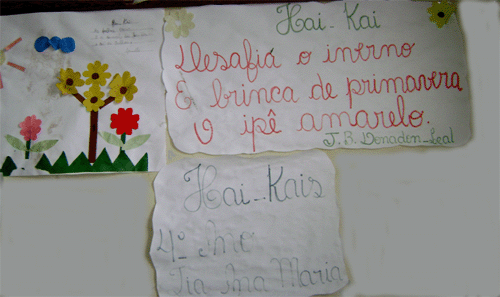 Hai-Kai
Desafia o inverno
E brinca de primavera
O ipê amarelo.
J. B. Donadon-Leal
Hai-Kais
4º Ano
Tia Ana Maria